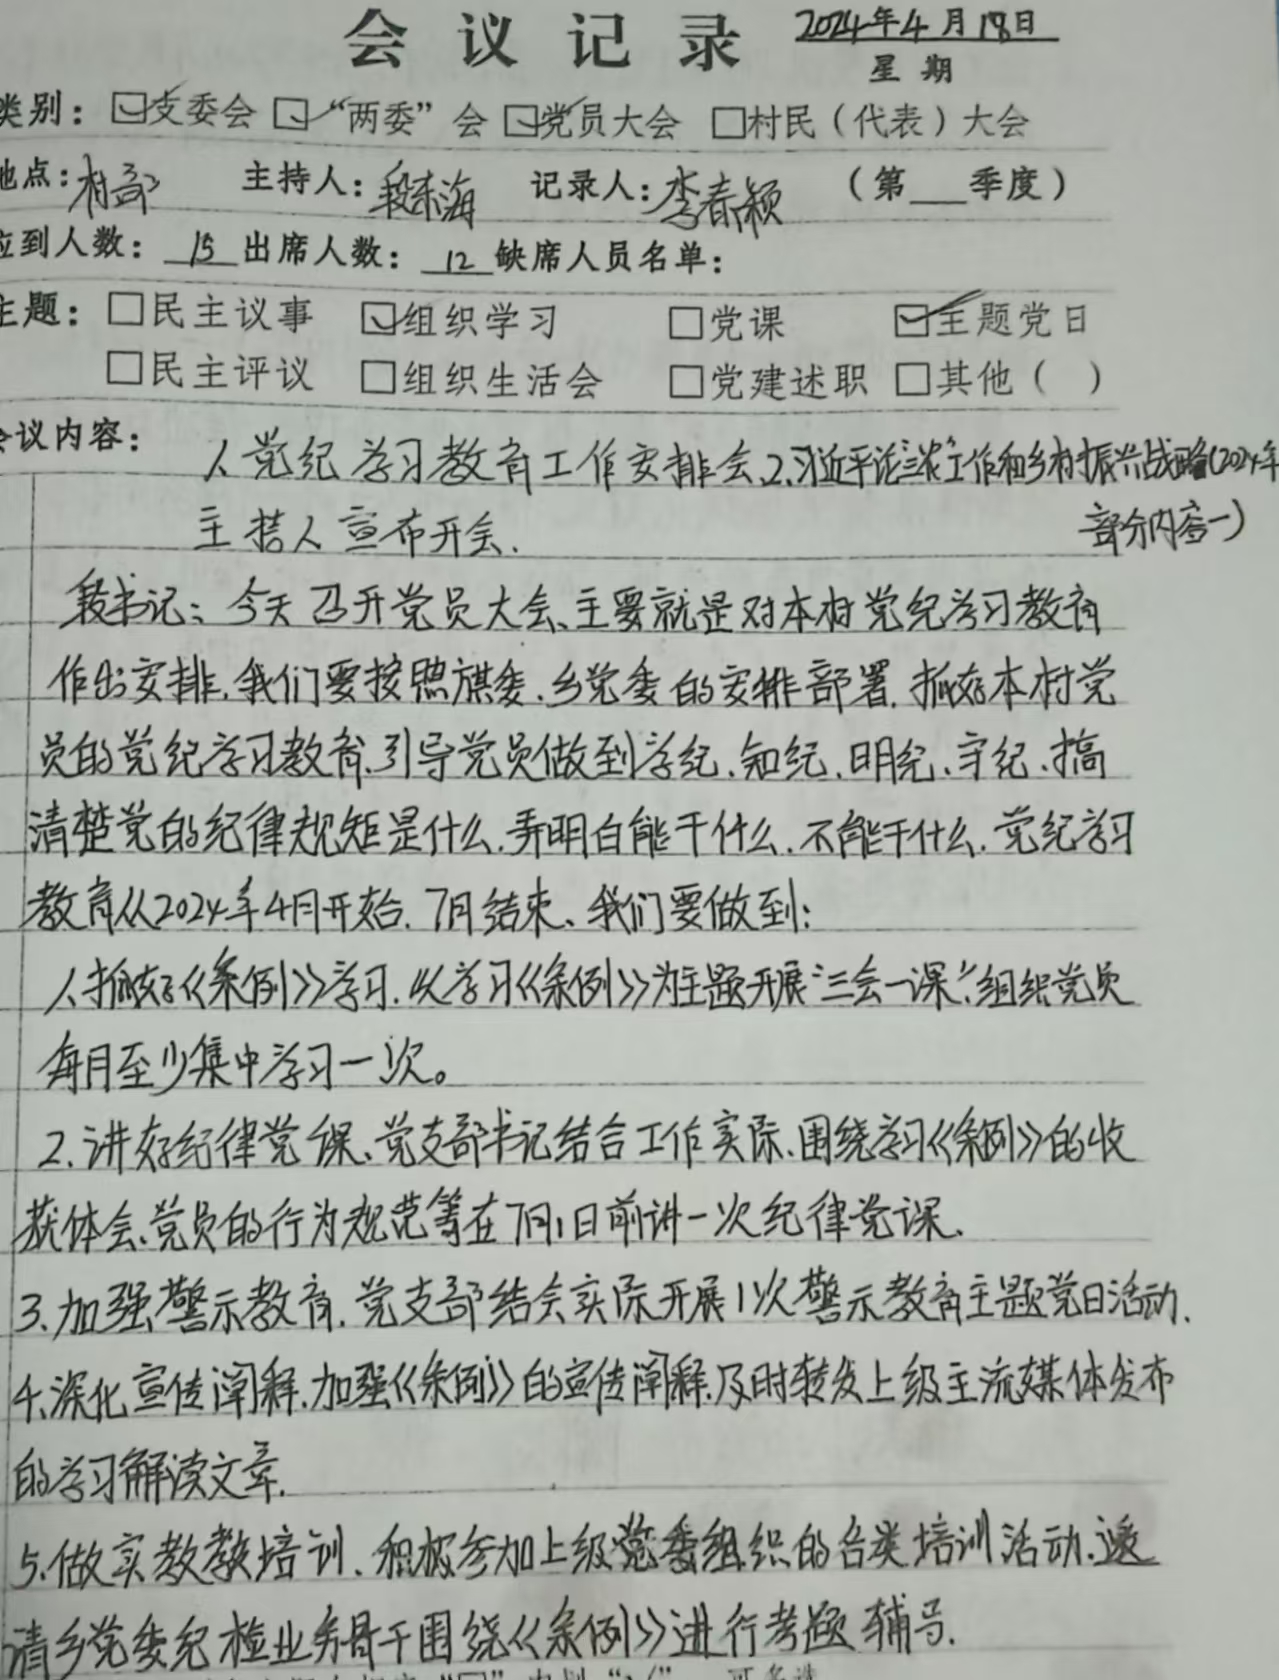 会议记录 2024年4月18日
星期
类别：☑支委会 ☑“两委”会 ☑党员大会 □村民（代表）大会
地点：村部 主持人：段东海 记录人：李春颖 （第___季度）
应到人数：15 出席人数：12 缺席人员名单：
主题：□民主议事 ☑组织学习 □党课 ☑主题党日
□民主评议 □组织生活会 □党建述职 □其他（ ）
会议内容： 1、党纪学习教育工作安排会、2、习近平论“三农”工作和乡村振兴战略（2024年
主持人宣布开会. 部分内容一）
段书记：今天召开党员大会、主要就是对本村党纪学习教育
作出安排.我们要按照旗委、乡党委的安排部署.抓好本村党
员的党纪学习教育.引导党员做到学纪、知纪、明纪、守纪、搞
清楚党的纪律规矩是什么.弄明白能干什么.不能干什么.党纪学习
教育从2024年4月开始.7月结束、我们要做到：
1、抓好《条例》学习.以学习《条例》为主题开展“三会一课”.组织党员
每月至少集中学习一次。
2.讲好纪律党课、党支部书记结合工作实际.围绕学习《条例》的收
获体会、党员的行为规范等在7月1日前讲一次纪律党课.
3.加强警示教育.党支部结会实际开展1次警示教育主题党日活动.
4.深化宣传阐释.加强《条例》的宣传阐释.及时转发上级主流媒体发布
的学习解读文章.
5.做实教教培训.积极参加上级党委组织的各类培训活动.邀
请乡党委纪检业务骨干围绕《条例》进行考题辅导.